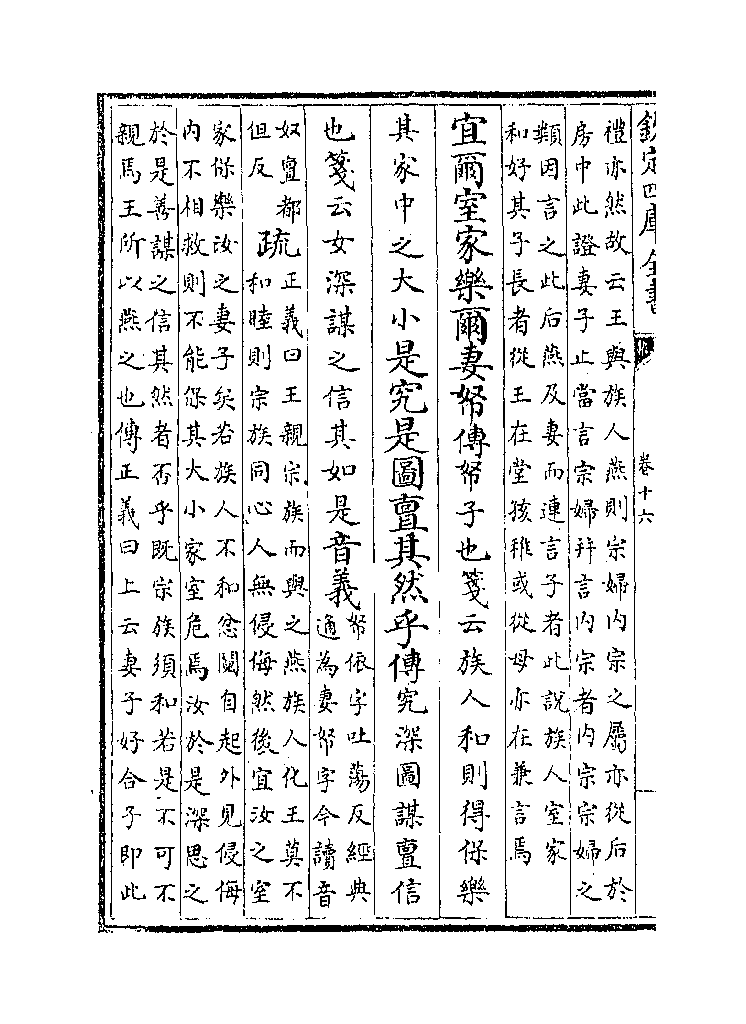 欽定四庫全書
卷十六
禮亦然故云王與族人燕則宗婦内宗之屬亦從后於
房中此證妻子止當言宗婦并言内宗者内宗宗婦之
類因言之此后燕及妻而連言子者此説族人室家
和好其子長者從王在堂孩稚或從母亦在兼言焉
宜爾室家樂爾妻帑傳帑子也箋云族人和則得保樂
其家中之大小是究是圖亶其然乎傳究深圖謀亶信
也箋云女深謀之信其如是音義帑依字吐蕩反經典
通為妻帑字今讀音
奴亶都
但反疏正義曰王親宗族而與之燕族人化王莫不
和睦則宗族同心人無侵侮然後宜汝之室
家保樂汝之妻子矣若族人不和忿鬩自起外見侵侮
内不相救則不能保其大小家室危焉汝於是深思之
於是善謀之信其然者否乎既宗族須和若是不可不
親焉王所以燕之也傳正義曰上云妻子好合子即此